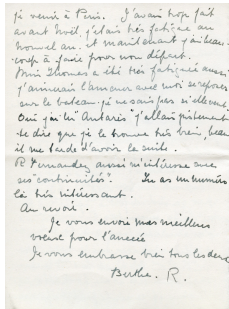 je venir à Paris. J'avais trop fait
avant Noël, j'étais très fatiguée au
nouvel an. et maintenant j'ai beau-
coup à faire pour mon départ.
Miss Thomas a été très fatiguée aussi
j'aimerais l'amener avec moi se reposer
sur le bateau. je ne sais pas si elle veut.
Oui j'ai lu "Antarès" j'allais justement
te dire que je le trouve très bien, beau
il me tarde d'avoir la suite.
R Fernandez aussi m'intéresse avec
ses "continuités". Tu as un numéro
là très intéressant.
Au revoir.
Je vous envoie mes meilleurs
vœux pour l'année
Je vous embrasse bien tous les deux
Berthe. R.